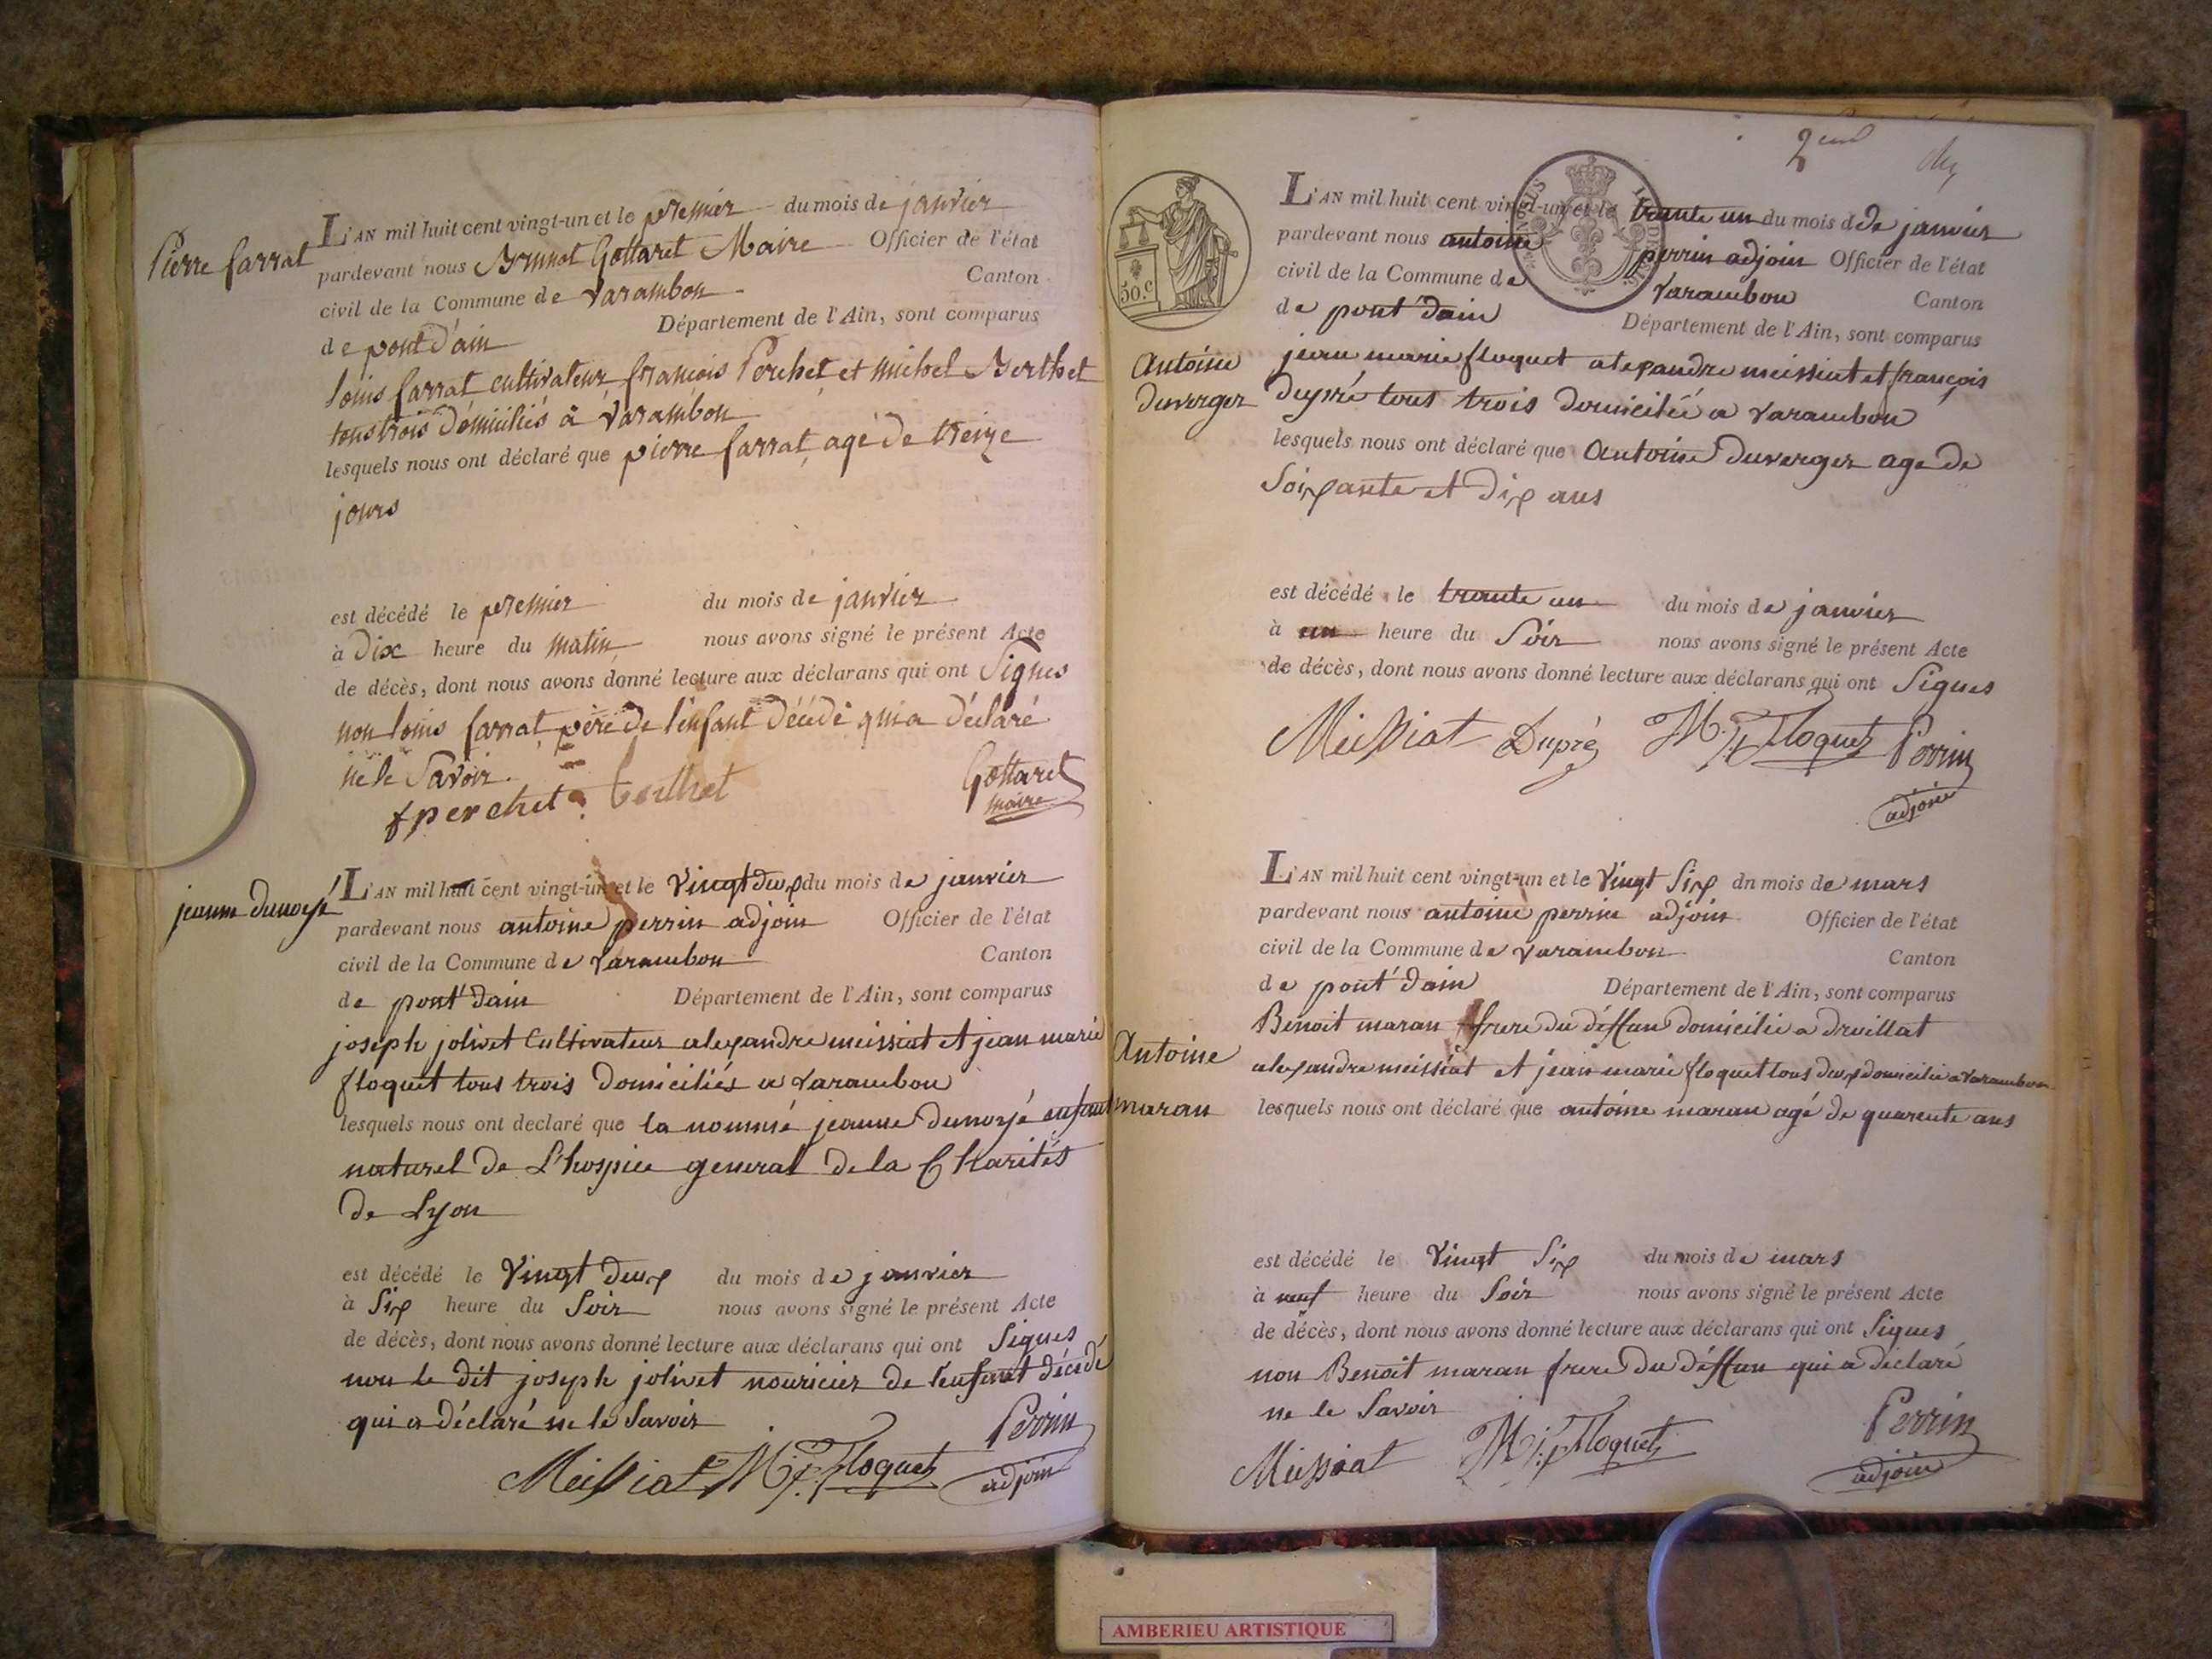 Pierre farrat
L'AN mil huit cent vingt-un et le premier du mois de janvier
pardevant nous Brunot Gottaret Maire Officier de l'état
civil de la Commune de varambon Canton
de pont d'ain Département de l'Ain, sont comparus
louis farrat cultivateur françois Perchet et michel Berthet
tous trois domiciliés à varambon
lesquels nous ont déclaré que pierre farrat agé de treize
jours
est décédé le premier du mois de janvier
à dix heure du matin nous avons signé le présent Acte
de décès, dont nous avons donné lecture aux déclarans qui ont Signes
non louis farrat père de l'enfant décédé qui a déclaré
ne le Savoir.
fperchet berthet Gottaret
maire
L'AN mil huit cent vingt-un et le vingt deux du mois de janvier
pardevant nous antoine perrin adjoin Officier de l'état
civil de la Commune de varambon Canton
de pont d'ain Département de l'Ain, sont comparus
joseph jolivet Cultivateur alexandre meissiat et jean marie
floquet tous trois domiciliés a varambon
lesquels nous ont déclaré que la nommé jeanne enfant
naturel de L'hospice general de la Charités
de Lyon
est décédé le vingt deux du mois de janvier
à Six heure du Soir nous avons signé le présent Acte
de décès, dont nous avons donné lecture aux déclarans qui ont Signes
non le dit joseph jolivet nouricier de l'enfent décédé
qui a déclaré ne le Savoir Perrin
Meissiat Floquet adjoin
2
50.c
L'AN mil huit cent vingt-un et le trante un du mois d de janvier
pardevant nous antoine perrin adjoin Officier de l'état
civil de la Commune de varambon Canton
de pont d'ain Département de l'Ain, sont comparus
Antoine
duverger
jean marie floquet alexandre meissiat et françois
dupré tous trois domicilié a varambon
lesquels nous ont déclaré que Antoine duverger age de
Soixante et dix ans
est décédé le trante un du mois de janvier
à un heure du Soir nous avons signé le présent Acte
de décès, dont nous avons donné lecture aux déclarans qui ont Signes
Meissiat Dupré Floquet Perrin
adjoin
L'AN mil huit cent vingt-un et le vingt Six du mois de mars
pardevant nous antoine perrin adjoin Officier de l'état
civil de la Commune de varambon Canton
de pont d'ain Département de l'Ain, sont comparus
Antoine
maran
Benoit maran frere du déffun domicilié a druillat
alexandre meissiat et jean marie floquet tous deux domicilié a varambon
lesquels nous ont déclaré que antoine maran agé de quarente ans
est décédé le vingt Six du mois de mars
à neuf heure du Soir nous avons signé le présent Acte
de décès, dont nous avons donné lecture aux déclarans qui ont Signes
non Benoit maran frere du déffun qui a déclaré
ne le Savoir
Meissiat Floquet Perrin
adjoin
AMBERIEU ARTISTIQUE